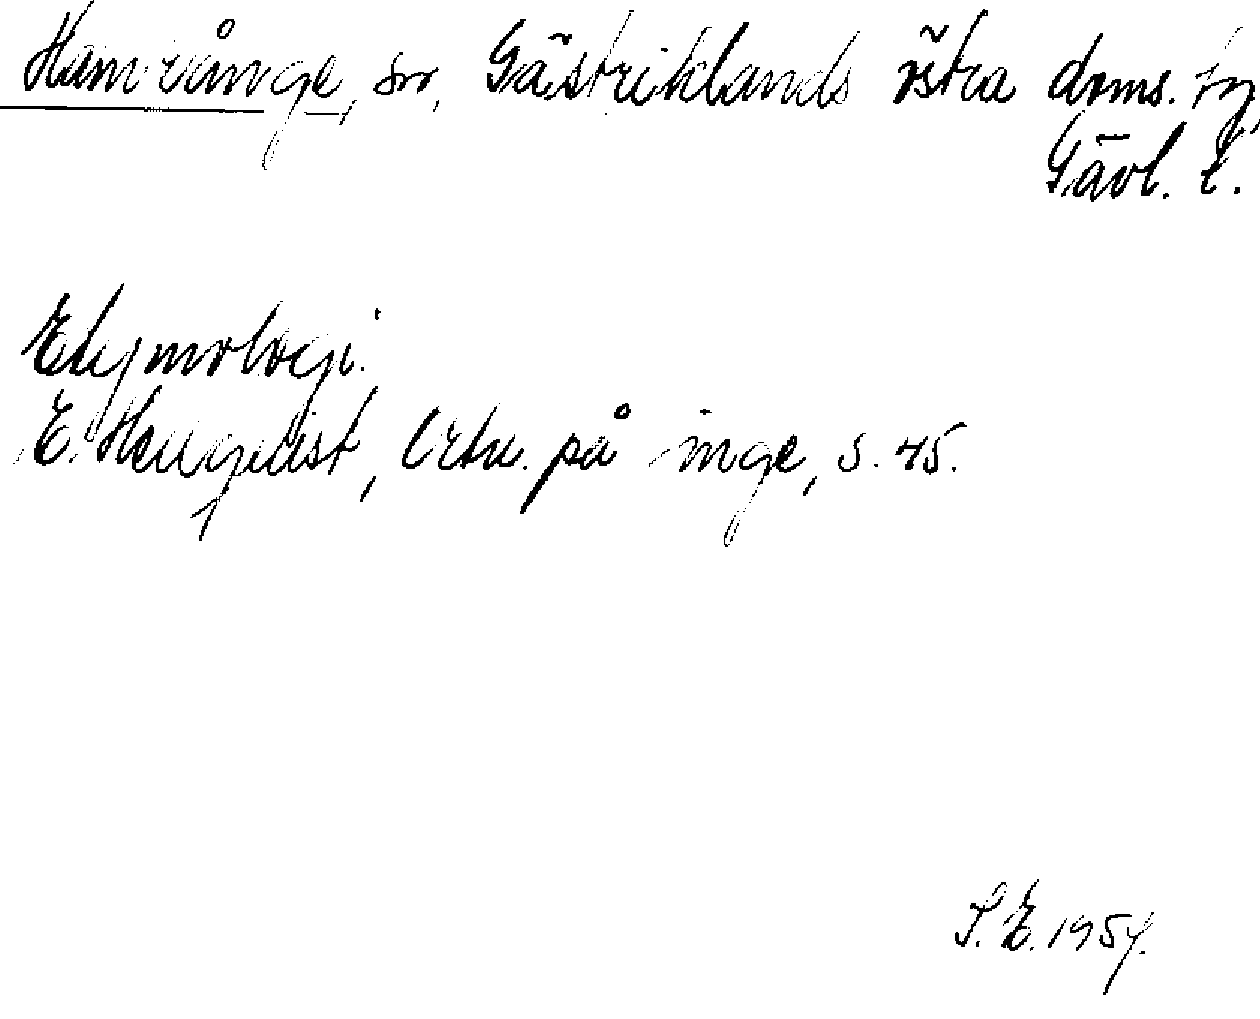 Hamrånge, sn, Gästriklands östra doms. tg,
Gävl. l.
Etymologi.
E. Hellquist, Ortn. på -inge, s. 45.
S. E. 1954.